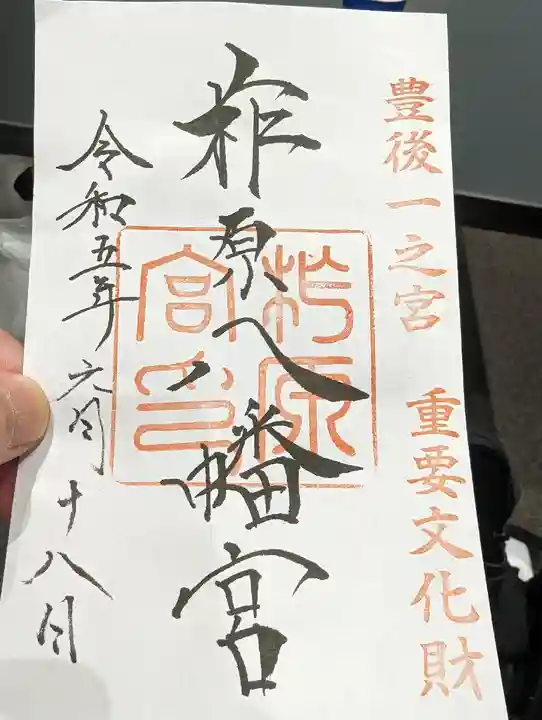 豊後一之宮 重要文化財
柞原八幡宮
柞原宮印
令和五年六月十八日